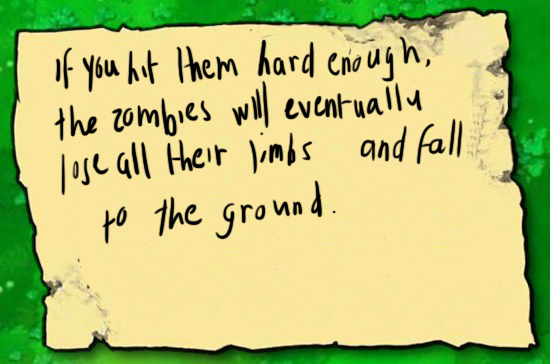 If you hit them hard enough,
the zombies will eventually
lose all their limbs and fall
to the ground.